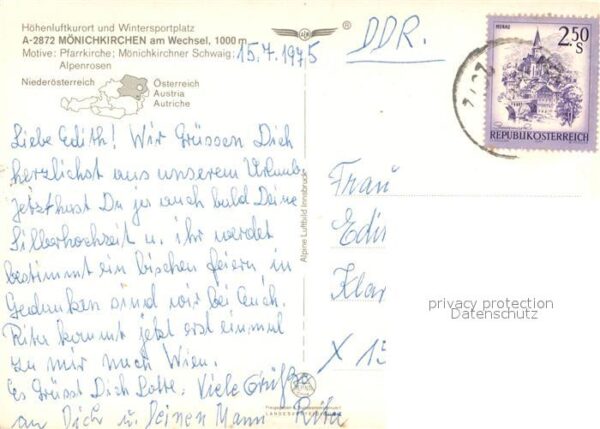 Höhenluftkurort und Wintersportplatz
A-2872 MÖNICHKIRCHEN am Wechsel, 1000 m
Motive: Pfarrkirche; Mönichkirchner Schwaig;
Alpenrosen
Niederösterreich
Österreich
Austria
Autriche
15.7.1975
DDR.
MURAU
2.50
S
REPUBLIK ÖSTERREICH
Liebe Edith! Wir Grüssen Dich
herzlichst aus unserem Urlaub
Jetzt hast Du ja auch bald Deine
Silberhochzeit u. ihr werdet
bestimmt ein bischen feiern in
Gedanken sind wir bei Euch.
Rita kommt jetzt erst einmal
zu mir nach Wien.
Es Grüsst Dich Lotte. Viele Grüße
an Dich u. Deinen Mann Rita
Alpine Luftbild Innsbruck
Frau
Edi
Klar
X 15
privacy protection
Datenschutz